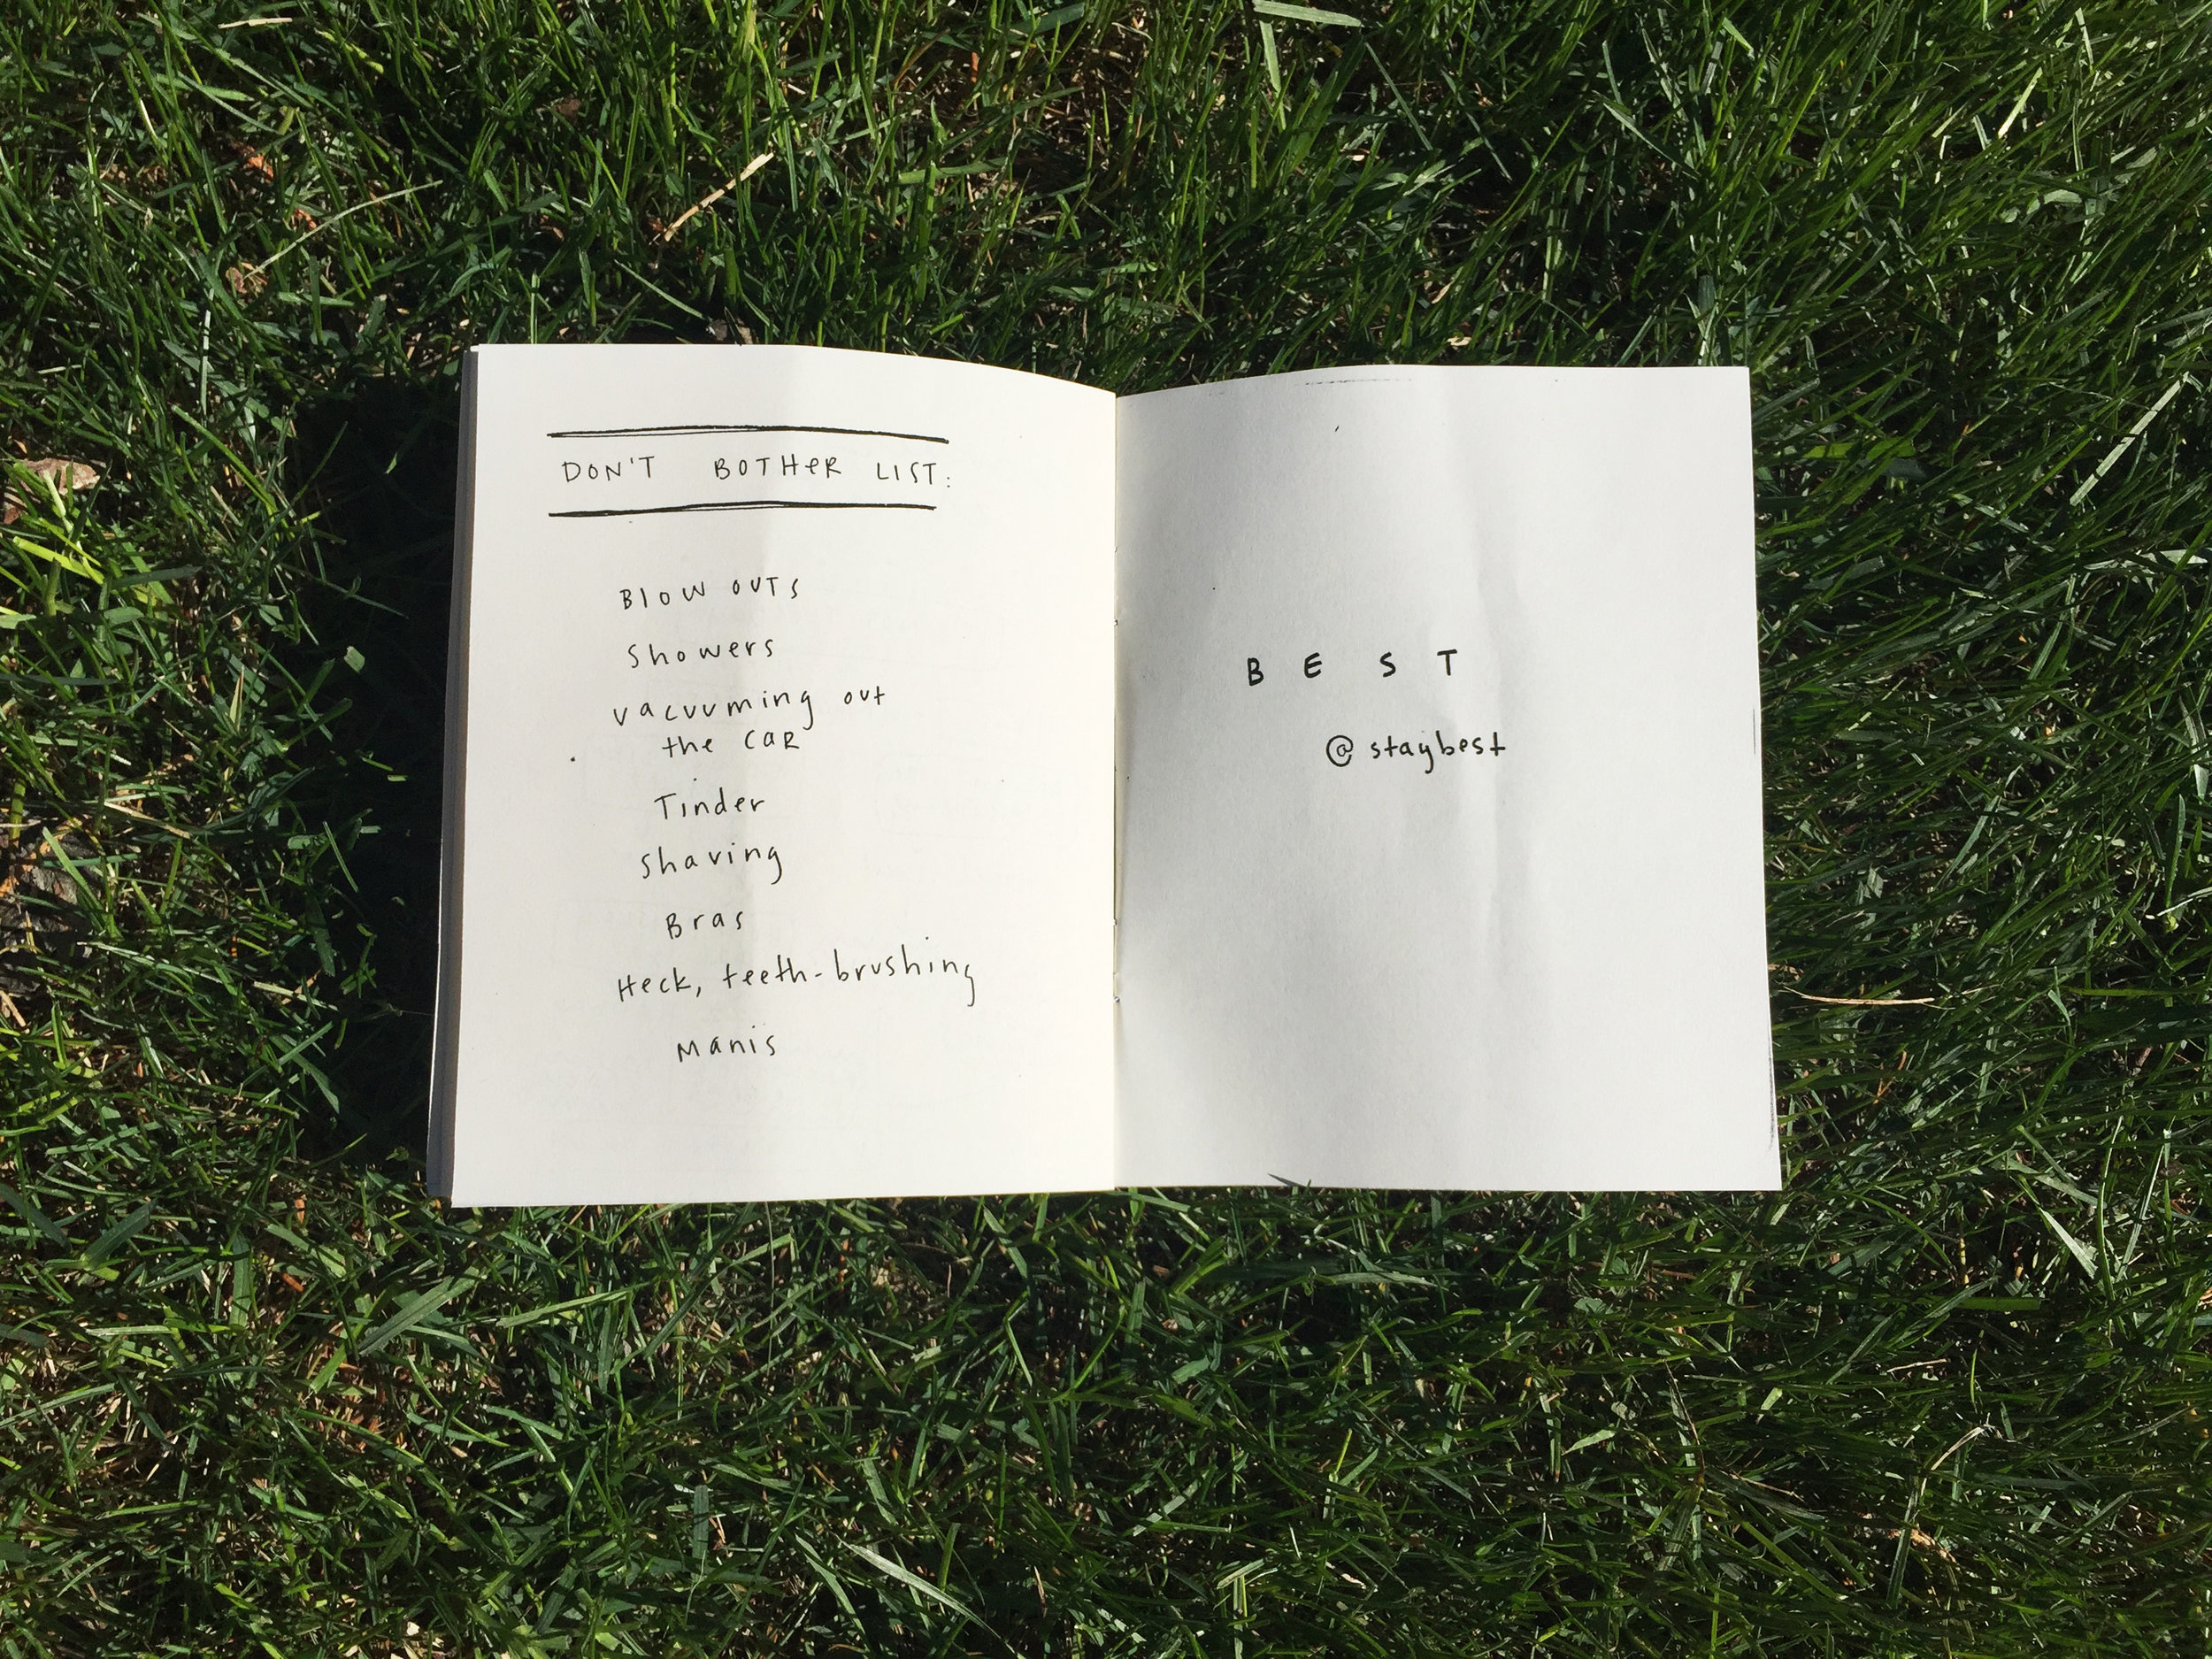 DON'T BOTHER LIST:
Blow outs
showers
vacuuming out
the car
Tinder
shaving
Bras
Heck, teeth-brushing
Manis
BEST
@staybest